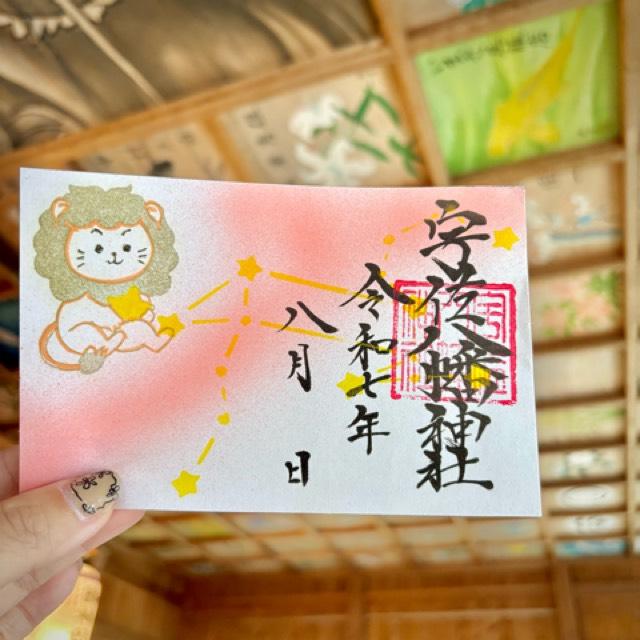 宇佐八幡神社
令和七年
八月 日